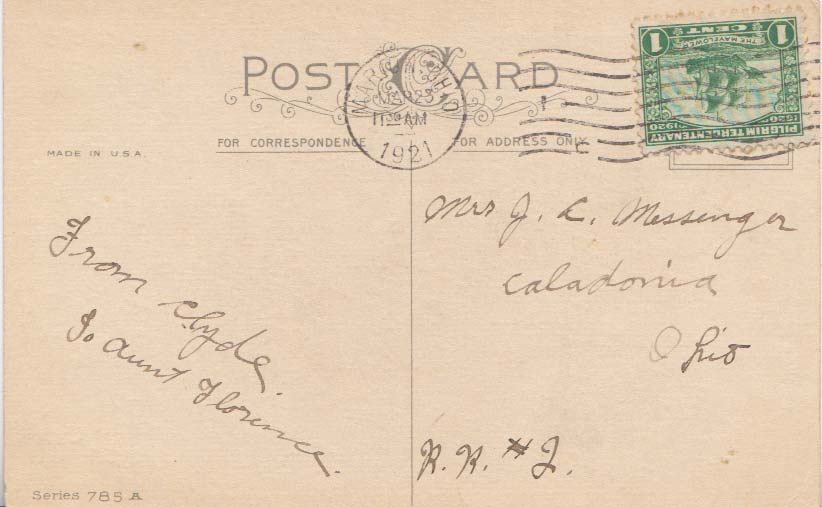 POST CARD
MARION OHIO
MAR 23
11 AM
1921
1 CENT 1
THE MAYFLOWER
1620 1920
PILGRIM TERCENTENARY
FOR CORRESPONDENCE
FOR ADDRESS ONLY
MADE IN U.S.A.
From Clyde.
To Aunt Florence.
Mrs J. C. Messenger
Caladonia
Ohio
R. R. # 2.
Series 785 A